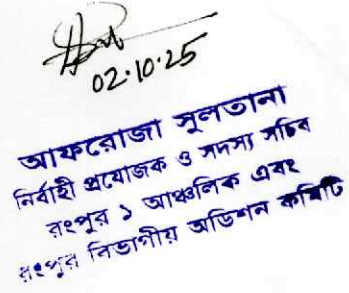 02.10.25
আফরোজা সুলতানা
নির্বাহী প্রযোজক ও সদস্য সচিব
রংপুর ১ আঞ্চলিক এবং
রংপুর বিভাগীয় অডিশন কমিটি